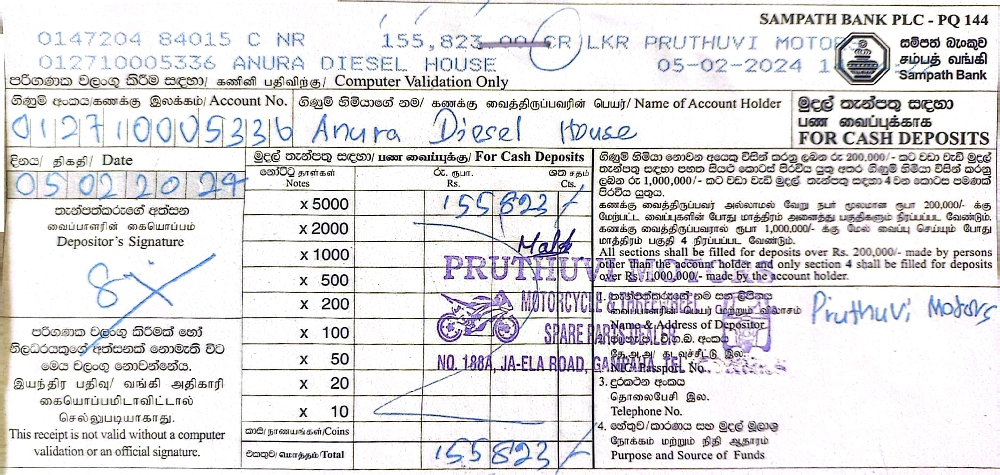 SAMPATH BANK PLC - PQ 144
0147204 84015 C NR 155,823.00 CR LKR PRUTHUVI MOTORS
012710005336 ANURA DIESEL HOUSE 05-02-2024
සම්පත් බැංකුව
சம்பத் வங்கி
Sampath Bank
පරිගණක වලංගු කිරීම සඳහා/ கணினி பதிவிற்கு/ Computer Validation Only
ගිණුම් අංකය/கணக்கு இலக்கம்/ Account No. ගිණුම් හිමියාගේ නම/ கணக்கு வைத்திருப்பவரின் பெயர்/ Name of Account Holder
012710005336 Anura Diesel House
මුදල් තැන්පතු සඳහා
பண வைப்புக்காக
FOR CASH DEPOSITS
දිනය/ திகதி/ Date
05 02 2024
තැන්පත්කරුගේ අත්සන
வைப்பாளரின் கையொப்பம்
Depositor's Signature
පරිගණක වලංගු කිරීමක් හෝ
නිලධරයකුගේ අත්සනක් නොමැති විට
මෙය වලංගු නොවන්නේය.
இயந்திர பதிவு/ வங்கி அதிகாரி
கையொப்பமிடாவிட்டால்
செல்லுபடியாகாது.
This receipt is not valid without a computer
validation or an official signature.
මුදල් තැන්පතු සඳහා/ பண வைப்புக்கு/ For Cash Deposits
නෝට්ටු தாள்கள் රු. ரூபா. ශත சதம்
Notes Rs. Cts.
x 5000 155823/-
x 2000
x 1000
x 500
x 200
x 100
x 50
x 20
x 10
කාසි/நாணயங்கள்/Coins
එකතුව/மொத்தம்/Total 155823/-
PRUTHUVI MOTORS
MOTORCYCLE & THREEWHEEL
SPARE PARTS DEALER
NO. 188A, JA-ELA ROAD, GAMPAHA. TEL
ගිණුම් හිමියා නොවන අයෙකු විසින් කරනු ලබන රු 200,000/- කට වඩා වැඩි මුදල්
තැන්පතු සඳහා පහත සියළු කොටස් පිරවිය යුතු අතර ගිණුම් හිමියා විසින් කරනු
ලබන රු 1,000,000/- කට වඩා වැඩි මුදල් තැන්පතු සඳහා 4 වන කොටස පමණක්
පිරවිය යුතුය.
கணக்கு வைத்திருப்பவர் அல்லாமல் வேறு நபர் மூலமான ரூபா 200,000/- க்கு
மேற்பட்ட வைப்புகளின் போது மாத்திரம் அனைத்து பகுதிகளும் நிரப்பபட வேண்டும்.
கணக்கு வைத்திருப்பவரால் ரூபா 1,000,000/- க்கு மேல் வைப்பு செய்யும் போது
மாத்திரம் பகுதி 4 நிரப்பபட வேண்டும்.
All sections shall be filled for deposits over Rs. 200,000/- made by persons
other than the account holder and only section 4 shall be filled for deposits
over Rs. 1,000,000/- made by the account holder.
1. තැන්පත්කරුගේ නම සහ ලිපිනය
வைப்பாளரின் பெயர் மற்றும் விலாசம்
Name & Address of Depositor
Pruthuvi Motors
NIC/Passport. No.
3. දුරකථන අංකය
தொலைபேசி இல.
Telephone No.
4. හේතුව/කාරණය සහ මුදල් මූලාශ්‍ර
நோக்கம் மற்றும் நிதி ஆதாரம்
Purpose and Source of Funds